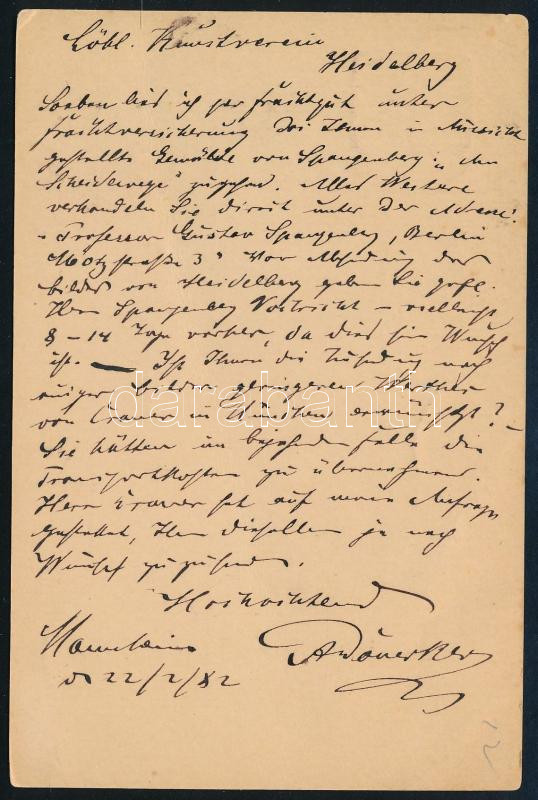 Löbl. Kunstverein
Heidelberg
Soeben ließ ich per Frachtgut unter
Frachtversicherung das Ihnen in Aussicht
gestellte Gemälde von Spangenberg: „Am
Scheidewege" zugehen. Alles Weitere
verhandeln Sie direct unter der Adresse:
- Professor Gustav Spangenberg, Berlin
Motzstraße 3" Vor Absendung des
Bildes von Heidelberg geben Sie gefl.
Herrn Spangenberg Nachricht – vielleicht
8 – 14 Tage vorher, da dies sein Wunsch
ist. — Ist Ihnen die Zusendung noch
einiger Bilder geringeren Werthes
von in München erwünscht? –
Sie hätten im bejahenden Falle die
Transportkosten zu übernehmen.
Herr hat auf meine Anfrage
gestattet, Ihnen dieselben je nach
Wunsch zuzusenden.
Hochachtend
Mannheim
d 22/2/82
darabanth